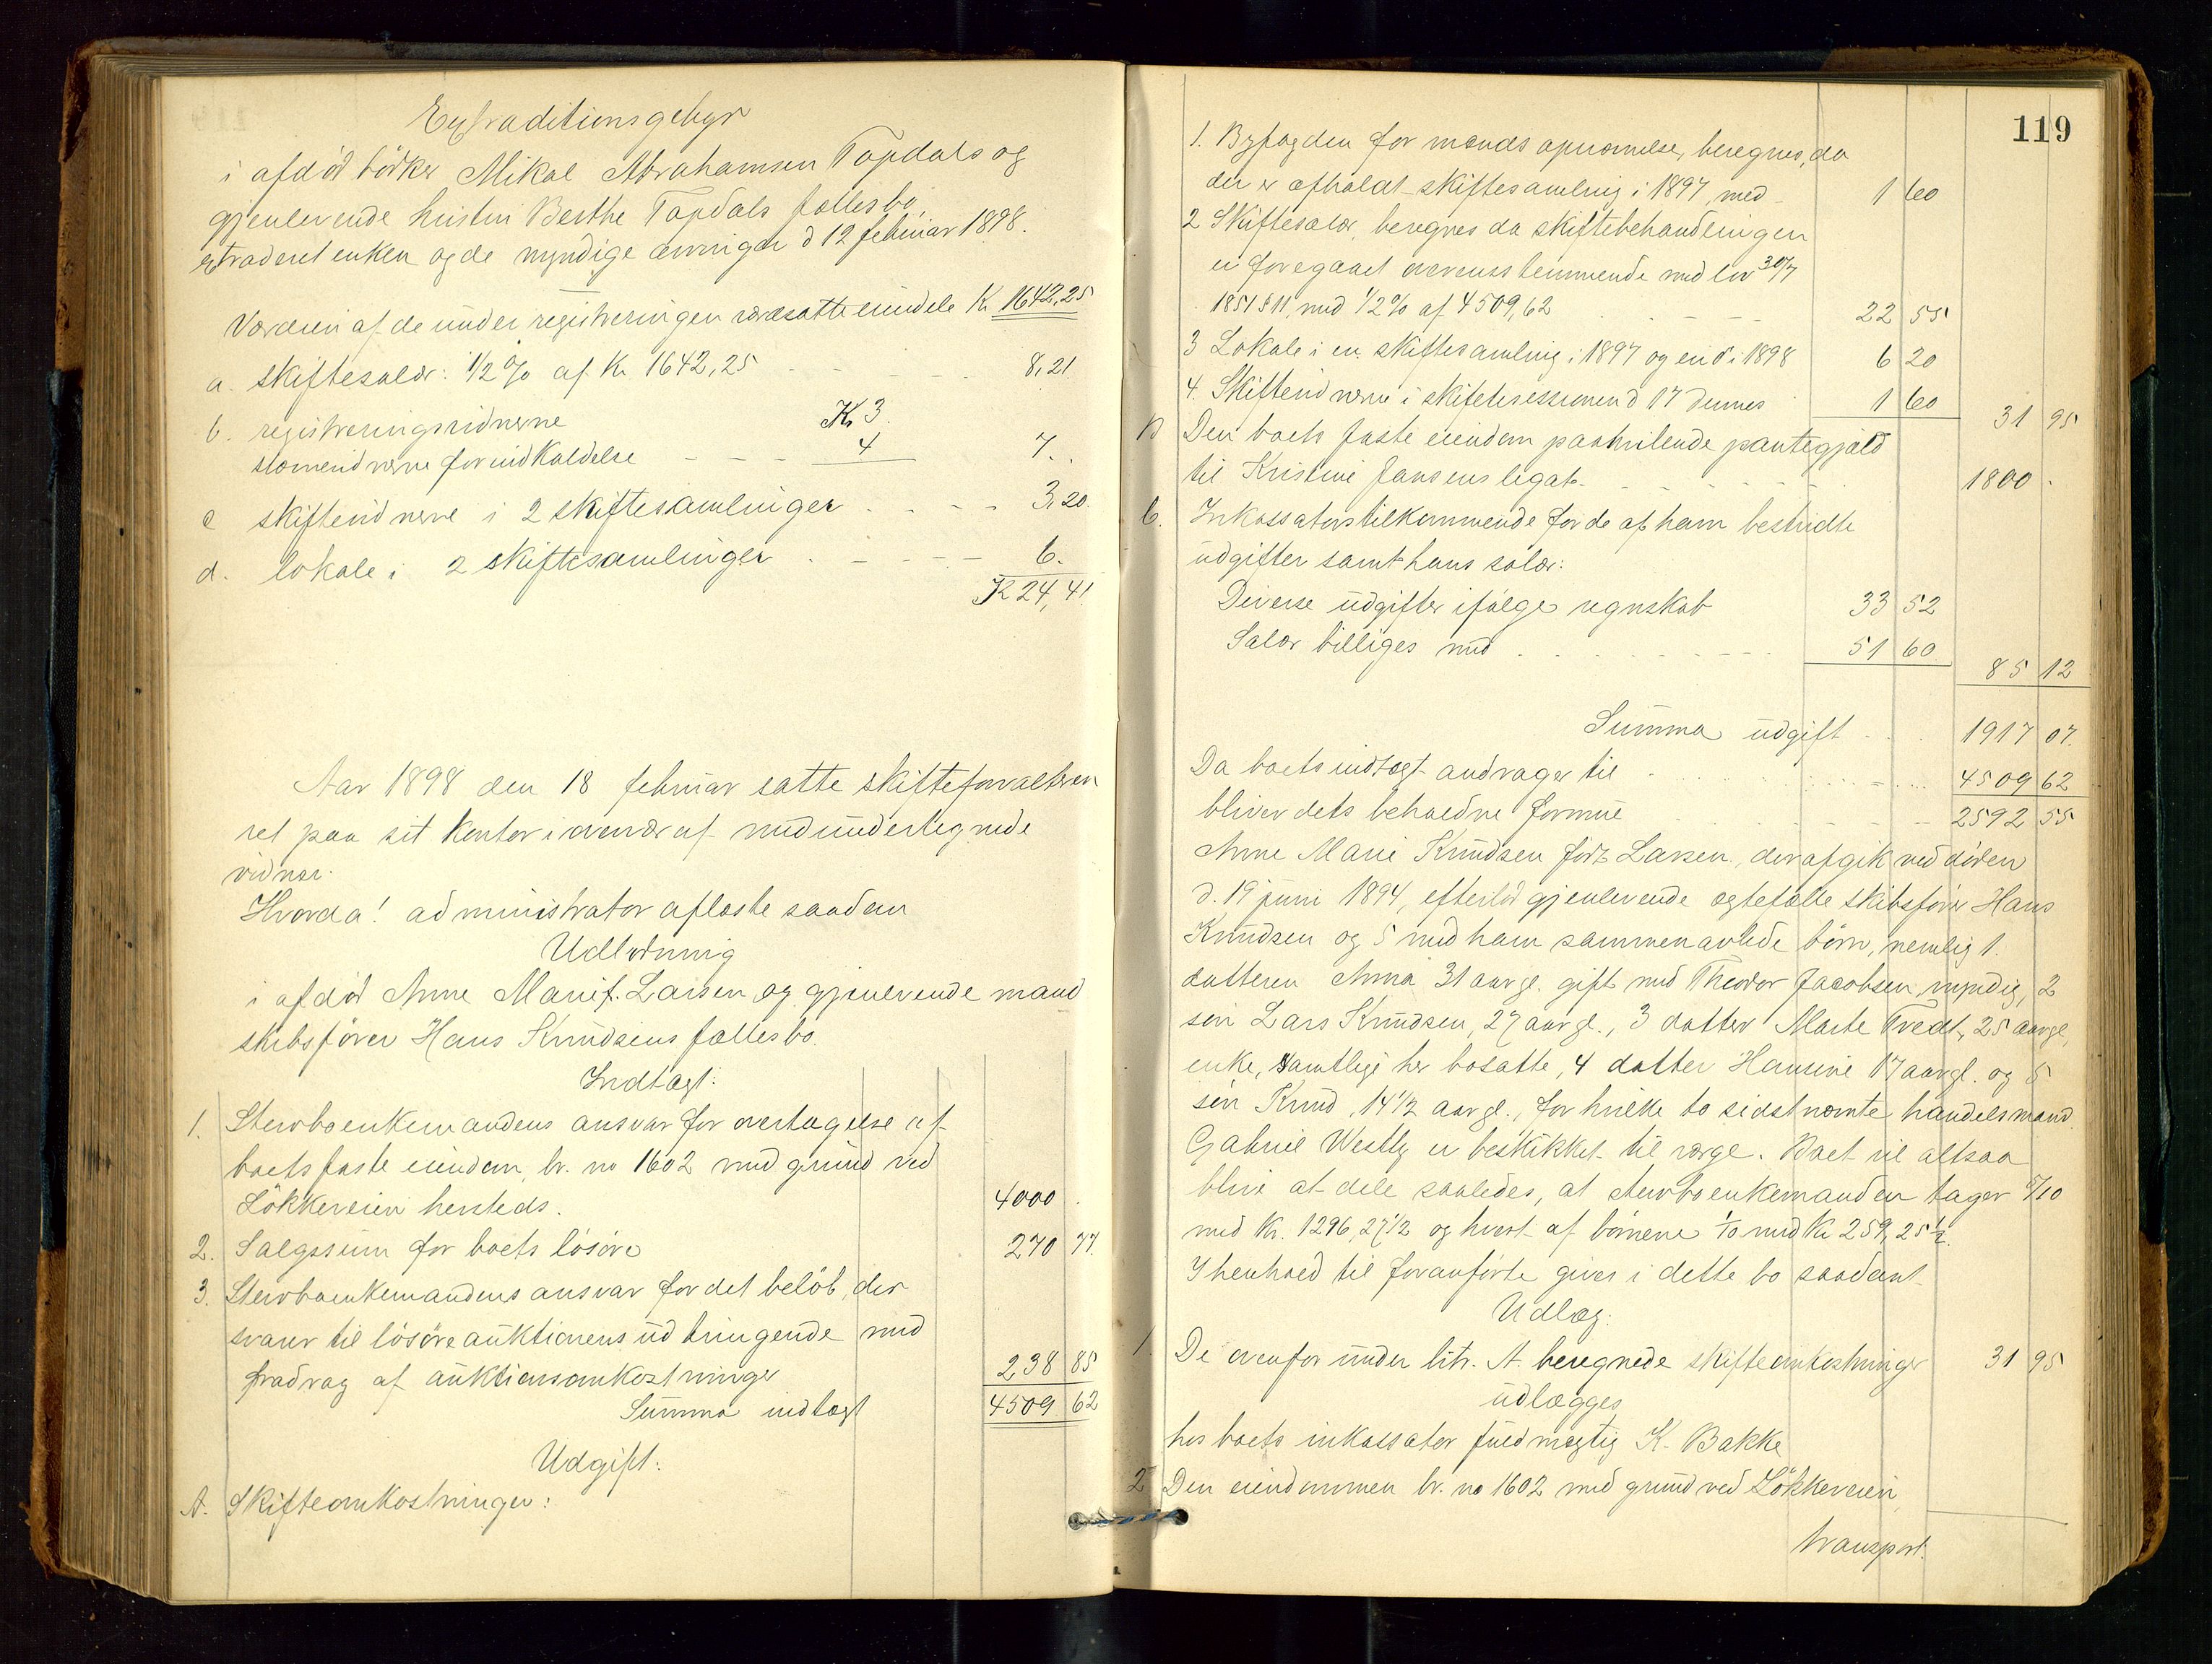 Extraditionsgebyr
i afdød bödker Mikal Abrahamsen Topdals og
gjenlevende hustru Berthe Topdals fællesbo,
extraderet enken og de myndige arvinger d 12 februar 1898.
Værdien af de under registreringen værdsatte eiendele Kr 1642,25
a. skiftesalær: 1/2 % af Kr 1642,25 - - - - 8,21
b. registreringsvidnerne Kr 3.
stævnevidnerne for indkaldelse - - - 4 7.
c skiftevidnerne i 2 skiftesamlinger - - - 3,20
d. lokale i 2 skiftesamlinger - - - 6.
K 24,41
Aar 1898 den 18 februar satte skifteforvalteren
ret paa sit kontor i overvær af medundertegnede
vidner.
Hvorda! administrator afleste saadan
Udlodning
i afdød Anne Marie f. Larsen og gjenlevende mand
skibsfører Hans Knudsens fællesbo.
Indtægt:
1. Stervboenkemandens ansvar for overtagelse af
boets faste eiendom, br. no 1602 med grund ved
Lökkeveien hersteds. 4000 .
2. Salgssum for boets lösöre 270 77.
3. Stervboenkemandens ansvar for det belöb, der
svarer til lösöreauktionens udbringende med
fradrag af auktionsomkostninger 238 85
Summa indtægt 4509 62
Udgift:
A. Skifteomkostninger:
119
1. Byfogden for mænds opnævnelse, beregnes, da
der er afholdt skiftesamling i 1897, med 1 60
2 Skiftesalær, beregnes da skiftebehandlingen
er foregaaet overensstemmende med lov 30/7
1851 § 11, med 1/2 % af 4509,62 22 55
3 Lokale i en skiftesamling i 1897 og en d i 1898 6 20
4. Skiftevidnerne i skiftesessionen d 17 dennes 1 60 31 95
B Den boets faste eiendom paahvilende pantegjæld
til Kristine Jansens legat - - - 1800 .
C. Inkassators tilkommende for de af ham bestridte
udgifter samt hans salær:
Diverse udgifter ifølge regnskab 33 52
Salær billiges med 51 60 85 12
Summa udgift 1917 07.
Da boets indtægt andrager til 4509 62
bliver dets beholdne formue 2592 55
Anne Marie Knudsen födt Larsen, der afgik ved döden
d. 19 juni 1894, efterlod gjenlevende ægtefælle skibsfører Hans
Knudsen og 5 med ham sammenavlede börn, nemlig 1.
datteren Anna 31 aar gl. gift med Theodor Jacobsen, myndig, 2
sön Lars Knudsen, 27 aar gl., 3 datter Marte Tvedt, 25 aar gl,
enke, samtlige her bosatte, 4 datter Hansine 17 aar gl. og 5
sön Knud, 14 1/2 aar gl., for hvilke to sidstnævnte handelsmand
Gabriel Westly er beskikket til værge. Boet vil altsaa
blive at dele saaledes, at stervboenkemanden tager 5/10
med Kr. 1296,27 1/2 og hvert af börnene 1/10 med Kr 259,25 1/2.
I henhold til foranførte gives i dette bo saadant
Udlæg:
1. De ovenfor under litr. A. beregnede skifteomkostninger 31 95
udlægges
hos boets inkassator fuldmægtig K. Bakke
2 Den eiendommen br. no 1602 med grund ved Lökkeveien
transport.